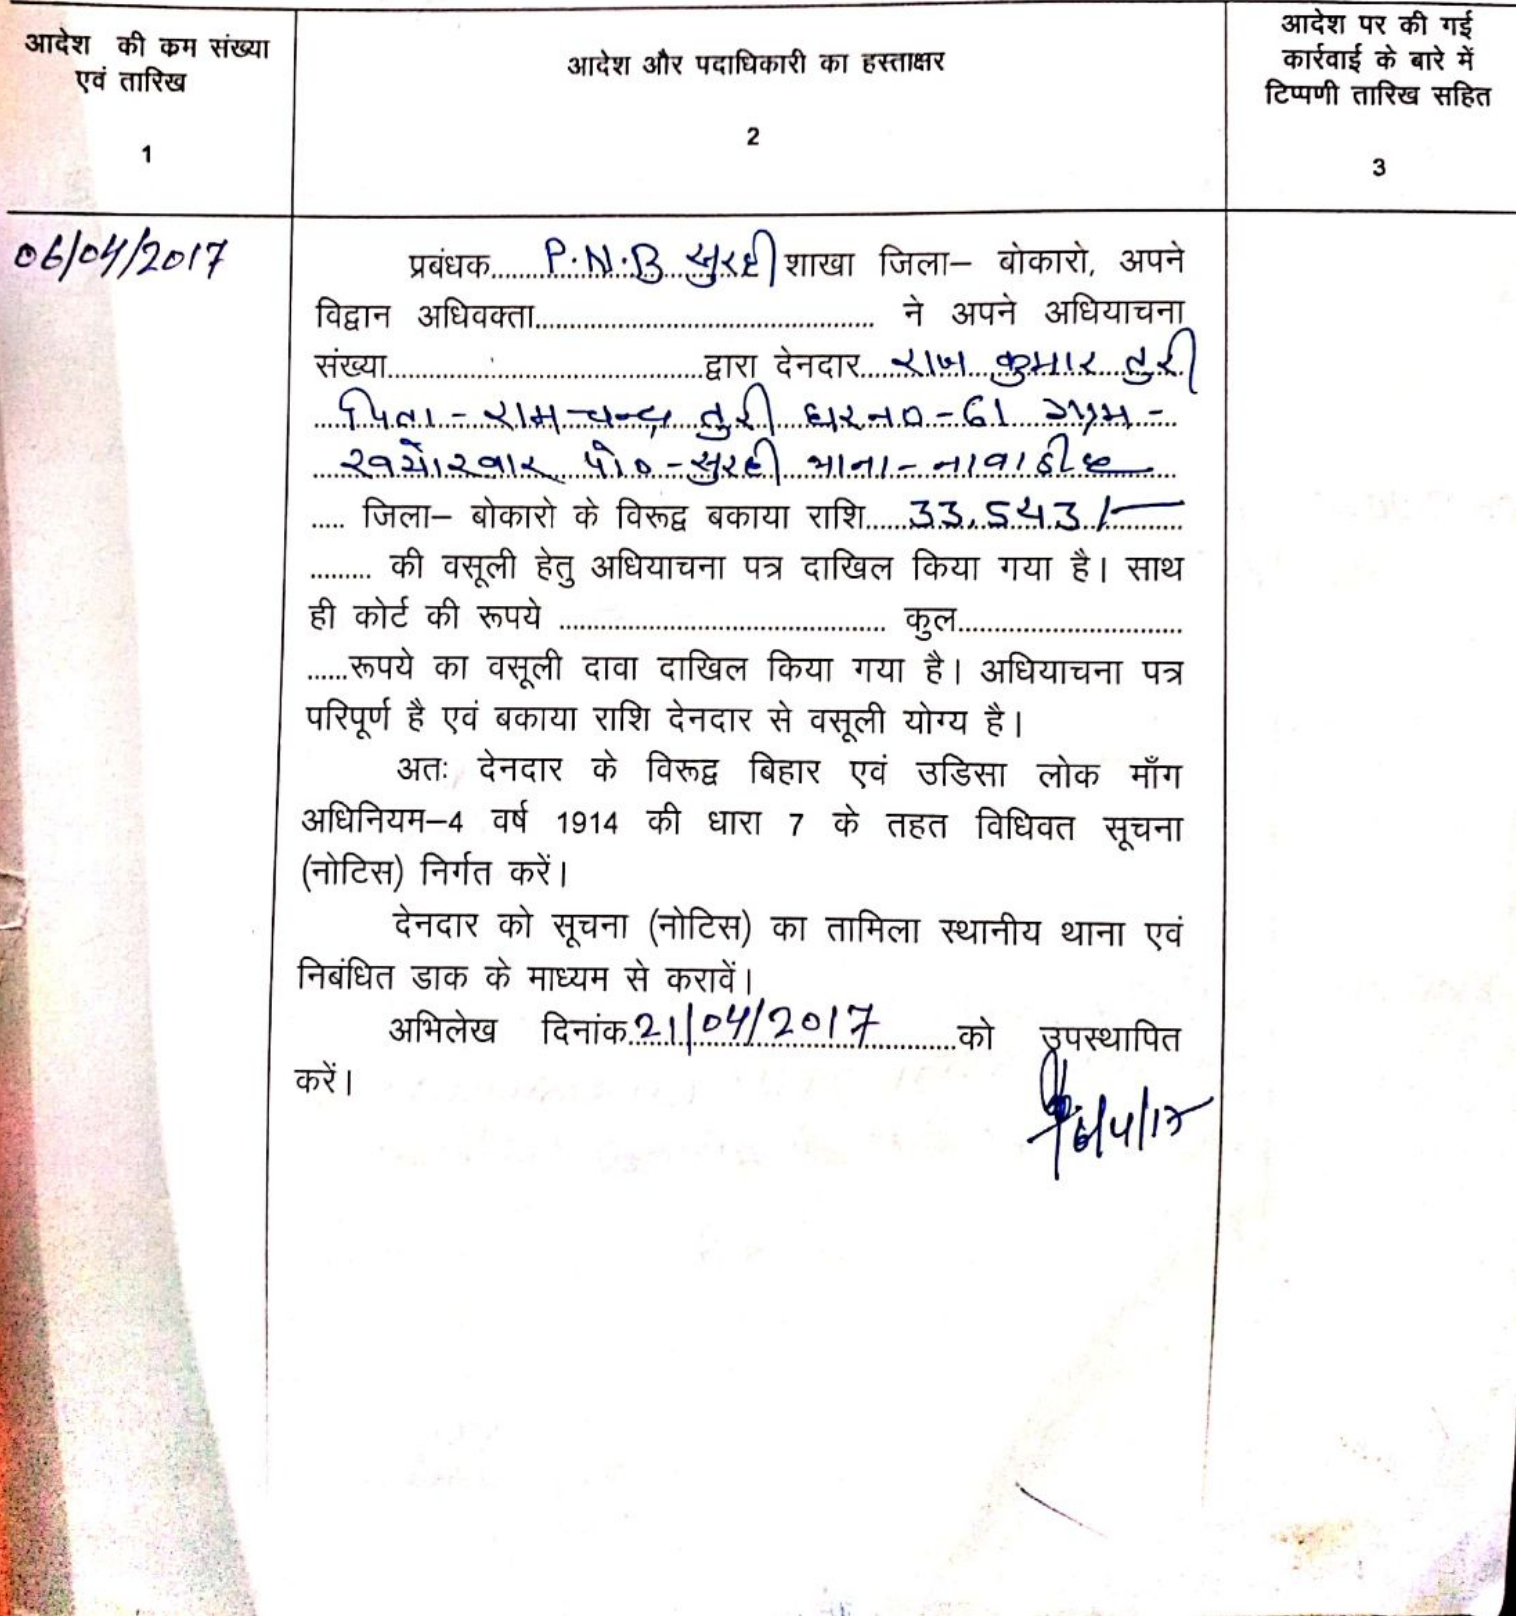 आदेश की कम संख्या
एवं तारिख
1
आदेश और पदाधिकारी का हस्ताक्षर
2
आदेश पर की गई
कार्रवाई के बारे में
टिप्पणी तारिख सहित
3
06/04/2017
प्रबंधक..... P.N.B सुरही शाखा जिला– बोकारो, अपने
विद्वान अधिवक्ता............................................ ने अपने अधियाचना
संख्या.........................................द्वारा देनदार....राज कुमार तुरी
पिता - राम चन्द्र तुरी घर न० - 61 ग्राम -
पो० - सुरही थाना - नावाडीह
..... जिला– बोकारो के विरूद्व बकाया राशि.....33,543/-
......... की वसूली हेतु अधियाचना पत्र दाखिल किया गया है। साथ
ही कोर्ट की रूपये .......................................... कुल.............................
......रूपये का वसूली दावा दाखिल किया गया है। अधियाचना पत्र
परिपूर्ण है एवं बकाया राशि देनदार से वसूली योग्य है।
अतः देनदार के विरूद्व बिहार एवं उडिसा लोक माँग
अधिनियम–4 वर्ष 1914 की धारा 7 के तहत विधिवत सूचना
(नोटिस) निर्गत करें।
देनदार को सूचना (नोटिस) का तामिला स्थानीय थाना एवं
निबंधित डाक के माध्यम से करावें।
अभिलेख दिनांक.21/04/2017..........को उपस्थापित
करें।
6/4/17